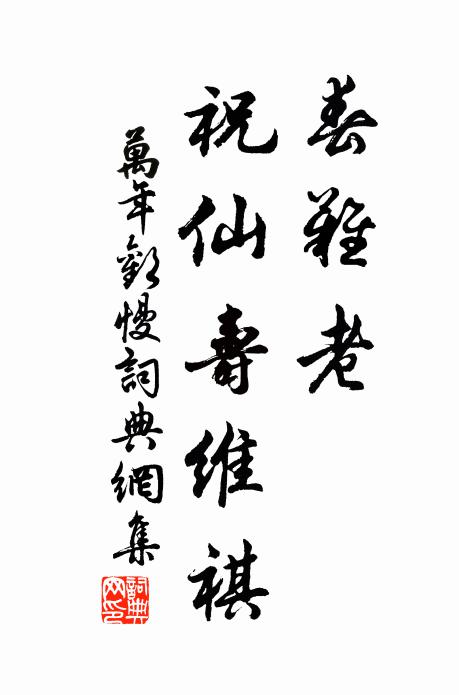 春難老
祝仙壽維祺
萬年歡慢詞典網集
詞典網印